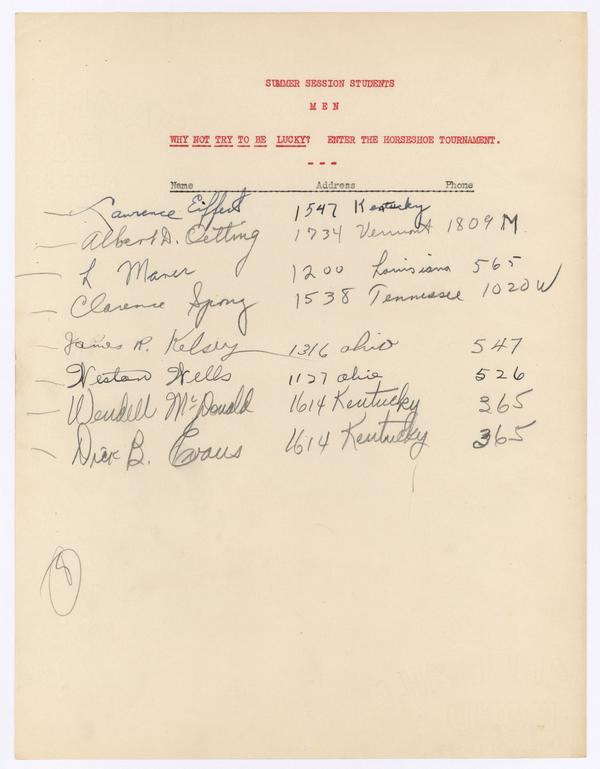 SUMMER SESSION STUDENTS
M E N
WHY NOT TRY TO BE LUCKY? ENTER THE HORSESHOE TOURNAMENT.
- - -
Name Address Phone
Lawrence Eiffert 1547 Kentucky
Albert D. Oetting 1734 Vermont 1809 M
L Maner 1200 Louisiana 565
Clarence Spong 1538 Tennessee 1020W
James R. Kelsey 1316 Ohio 547
Weston Wells 1127 Ohio 526
Wendell McDonald 1614 Kentucky 365
Dick B. Evans 1614 Kentucky 365
8